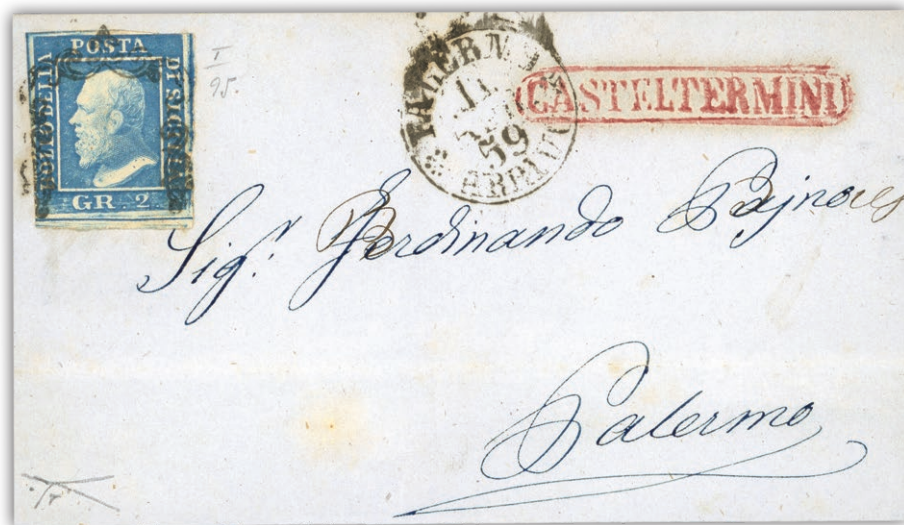 POSTA
BOLLO DELLA
DI SICILIA
GR. 2
I
95.
PALERMO
11
59
ARRIVO
CASTELTERMINI
Sigr. Ferdinando
Palermo